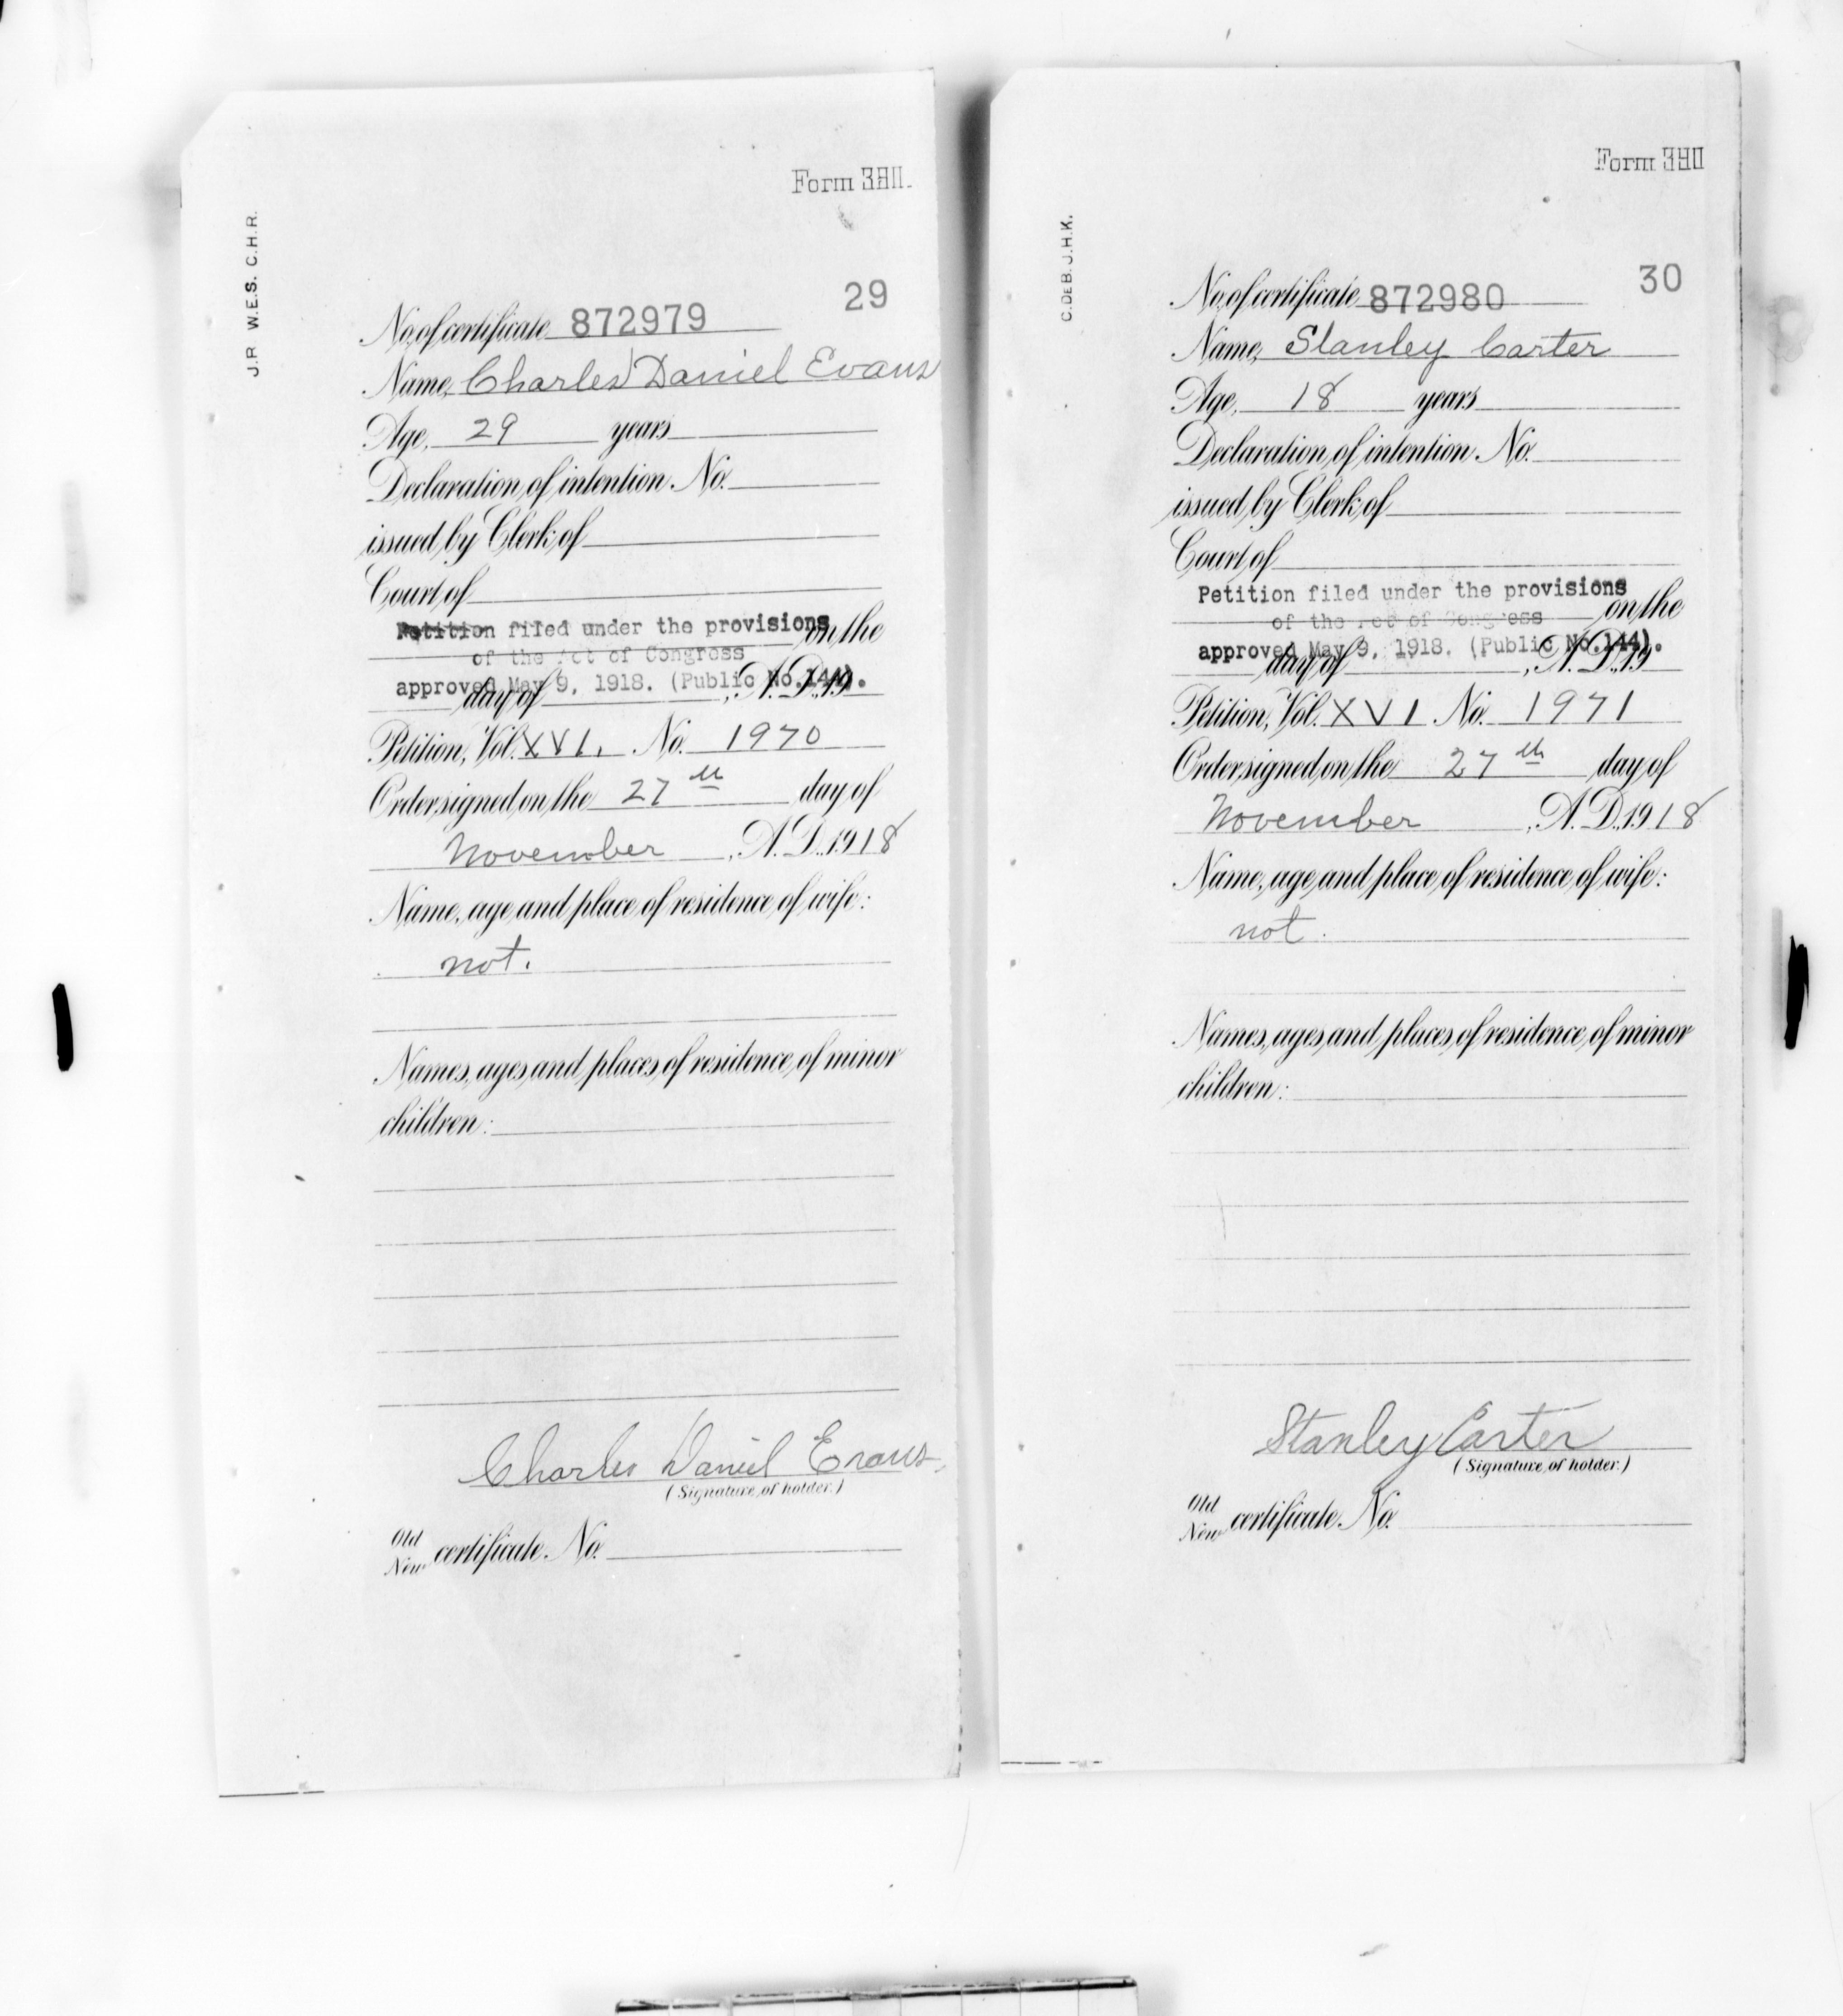 J.P. W.E.S. C.H.R.
29
No. of certificate 872979
Name, Charles Daniel Evans
Age, 29 years
Declaration of intention No.
issued by Clerk of
Court of
Petition filed under the provisions on the
of the Act of Congress
approved May 9, 1918. (Public No.144).
day of , A. D., 19
Petition, Vol. XVI. No. 1970
Order signed on the 27th day of
November , A. D., 1918
Name, age and place of residence of wife:
not.
Names, ages and places of residence of minor
children:
Charles Daniel Evans
(Signature of holder.)
Old
New certificate No.
C.DEB. J.H.K.
30
No. of certificate 872980
Name, Stanley Carter
Age, 18 years
Declaration of intention No.
issued by Clerk of
Court of
Petition filed under the provisions
of the Act of Congress on the
approved May 9, 1918. (Public No.144).
day of , A. D., 19
Petition, Vol. XVI No. 1971
Order signed on the 27th day of
November , A. D., 1918
Name, age and place of residence of wife:
not.
Names, ages and places of residence of minor
children:
Stanley Carter
(Signature of holder.)
Old
New certificate No.